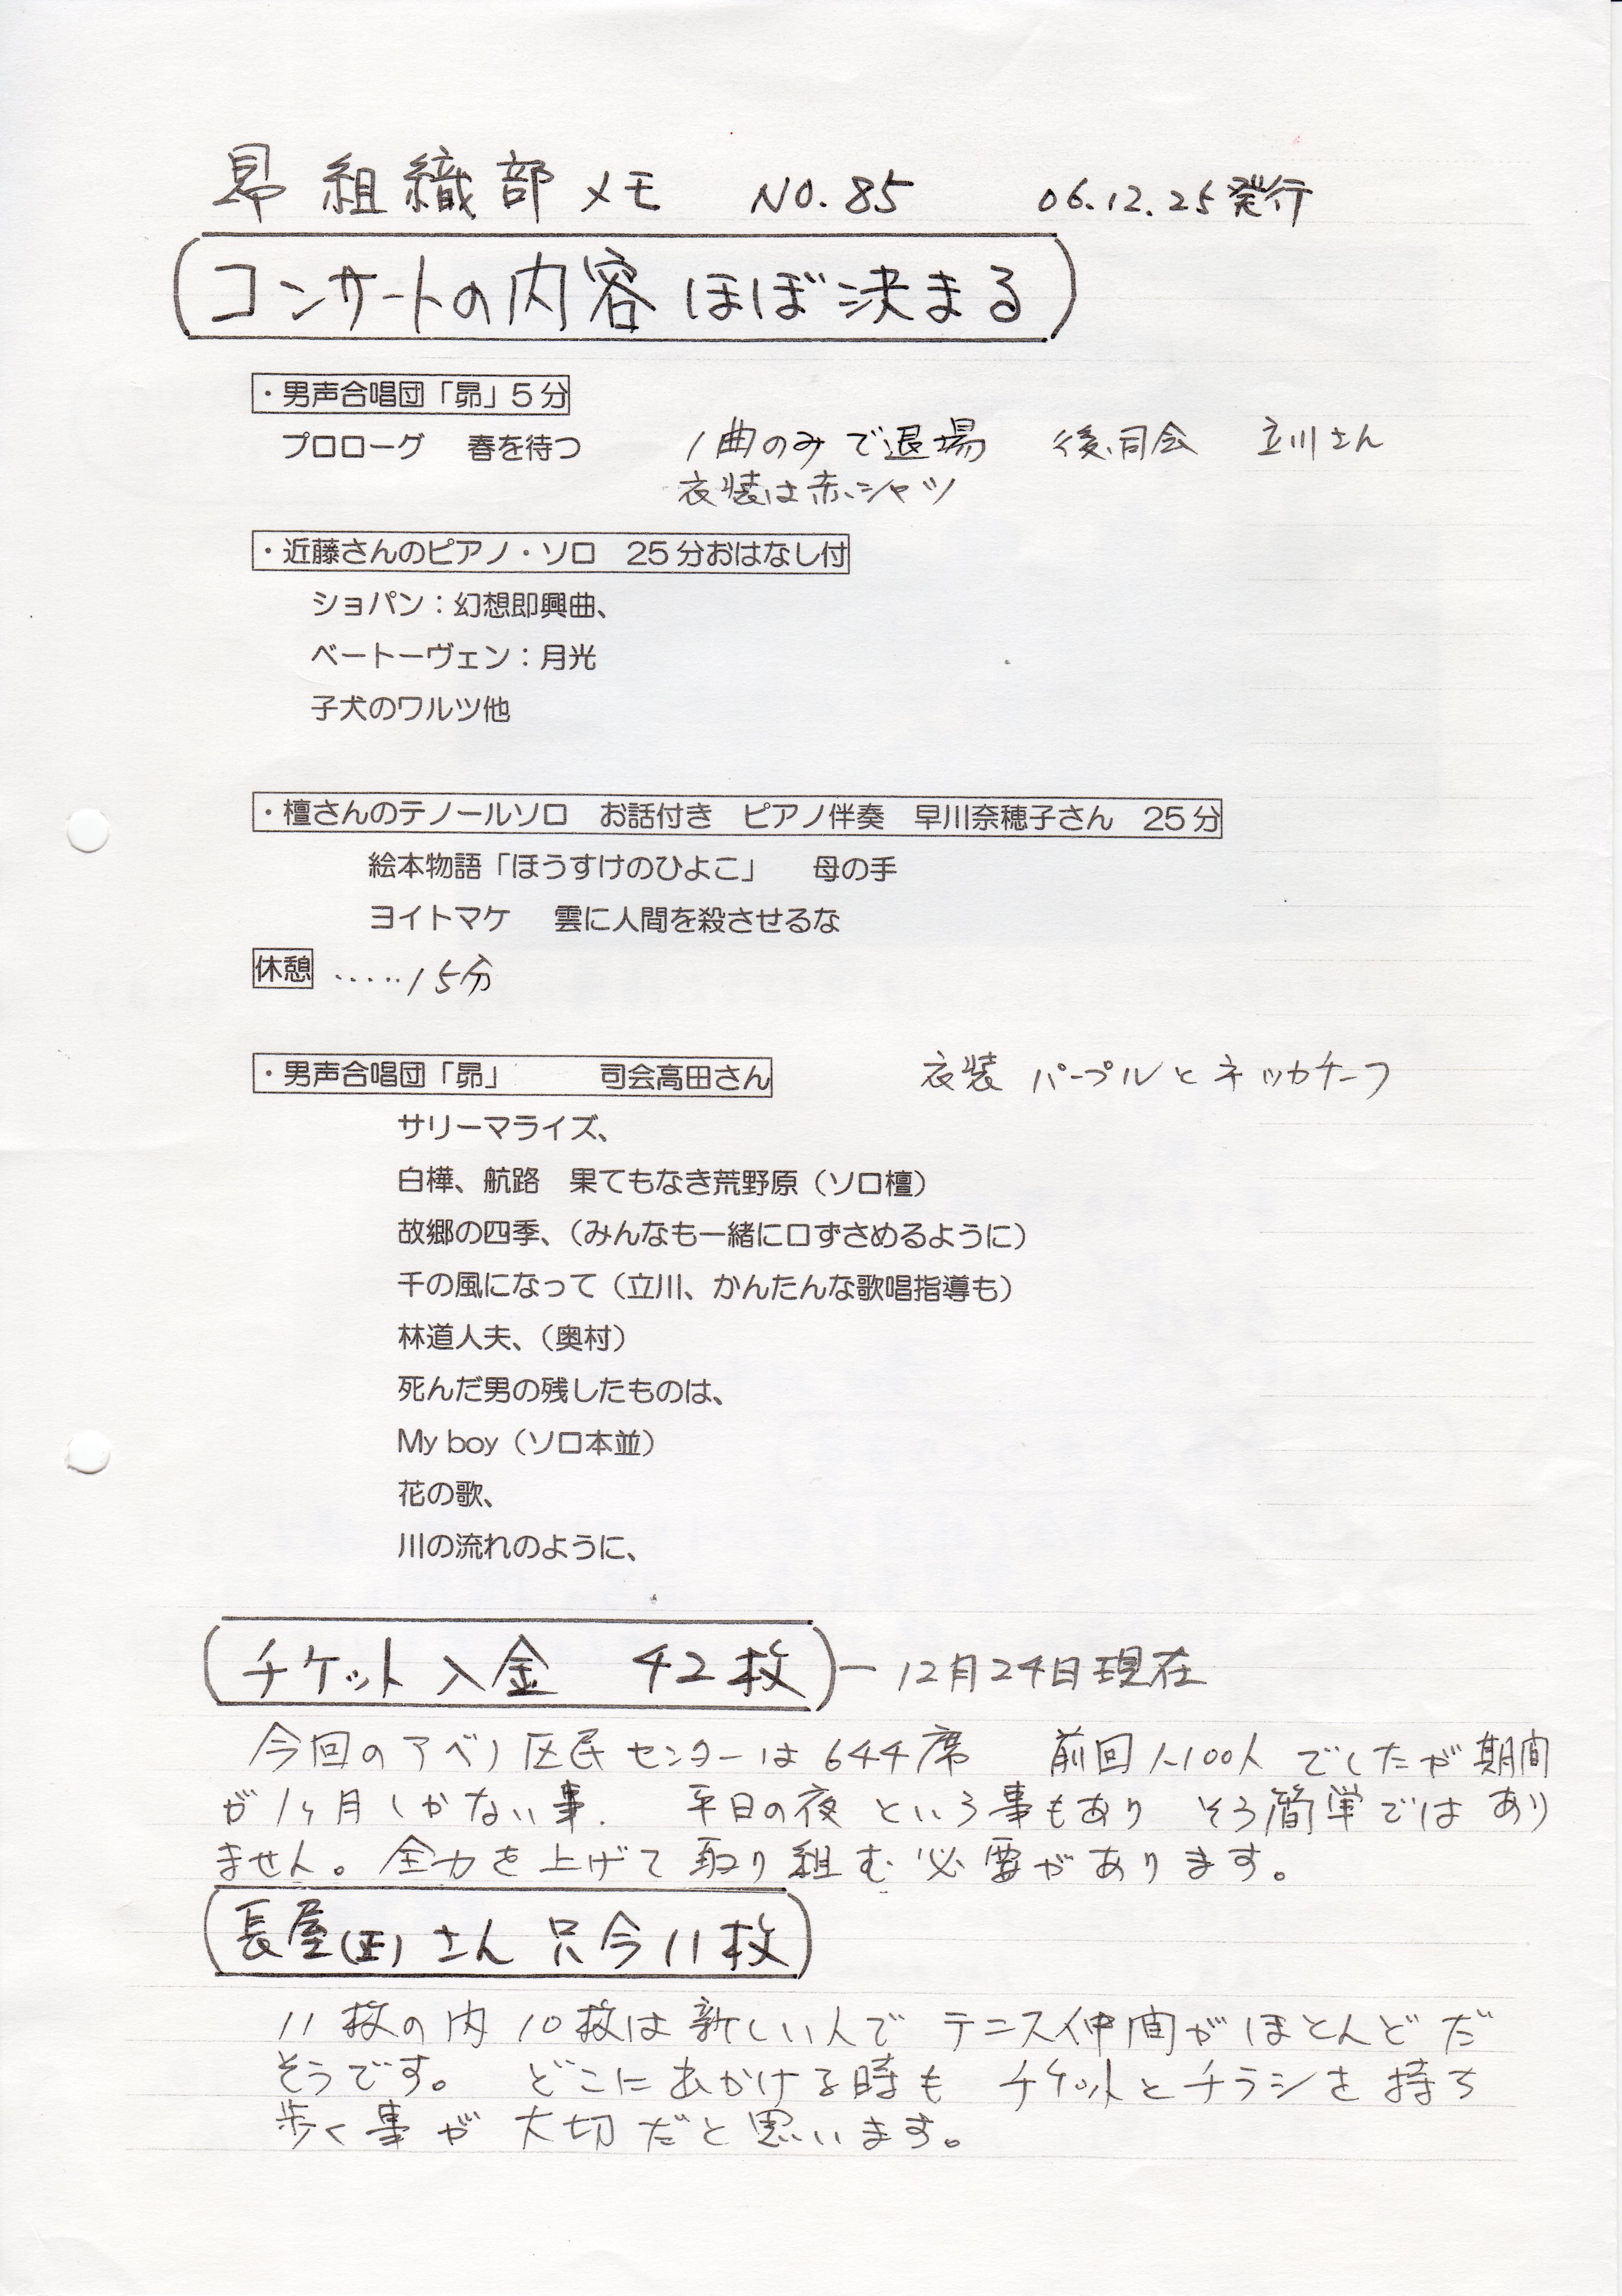 昴 組織部 メモ NO.85 06.12.25発行
コンサートの内容 ほぼ決まる
・男声合唱団「昴」5分
プロローグ 春を待つ 1曲のみで退場 後、司会 立川さん
衣装は赤シャツ
・近藤さんのピアノ・ソロ 25分おはなし付
ショパン：幻想即興曲、
ベートーヴェン：月光
子犬のワルツ他
・檀さんのテノールソロ お話付き ピアノ伴奏 早川奈穂子さん 25分
絵本物語「ほうすけのひよこ」 母の手
ヨイトマケ 雲に人間を殺させるな
休憩 ‥‥‥15分
・男声合唱団「昴」 司会高田さん 衣装 パープルとネッカチーフ
サリーマライズ、
白樺、航路 果てもなき荒野原（ソロ檀）
故郷の四季、（みんなも一緒に口ずさめるように）
千の風になって（立川、かんたんな歌唱指導も）
林道人夫、（奥村）
死んだ男の残したものは、
My boy（ソロ本並）
花の歌、
川の流れのように、
チケット入金 42枚 ー 12月24日現在
今回のアベノ区民センターは644席 前回1,100人でしたが期間
が1ヶ月しかない事. 平日の夜という事もあり そう簡単ではあり
ません。全力を上げて取り組む必要があります。
長屋(正)さん 只今11枚
11枚の内10枚は新しい人でテニス仲間がほとんどだ
そうです。 どこにおかける時も チケットとチラシを持ち
歩く事が大切だと思います。